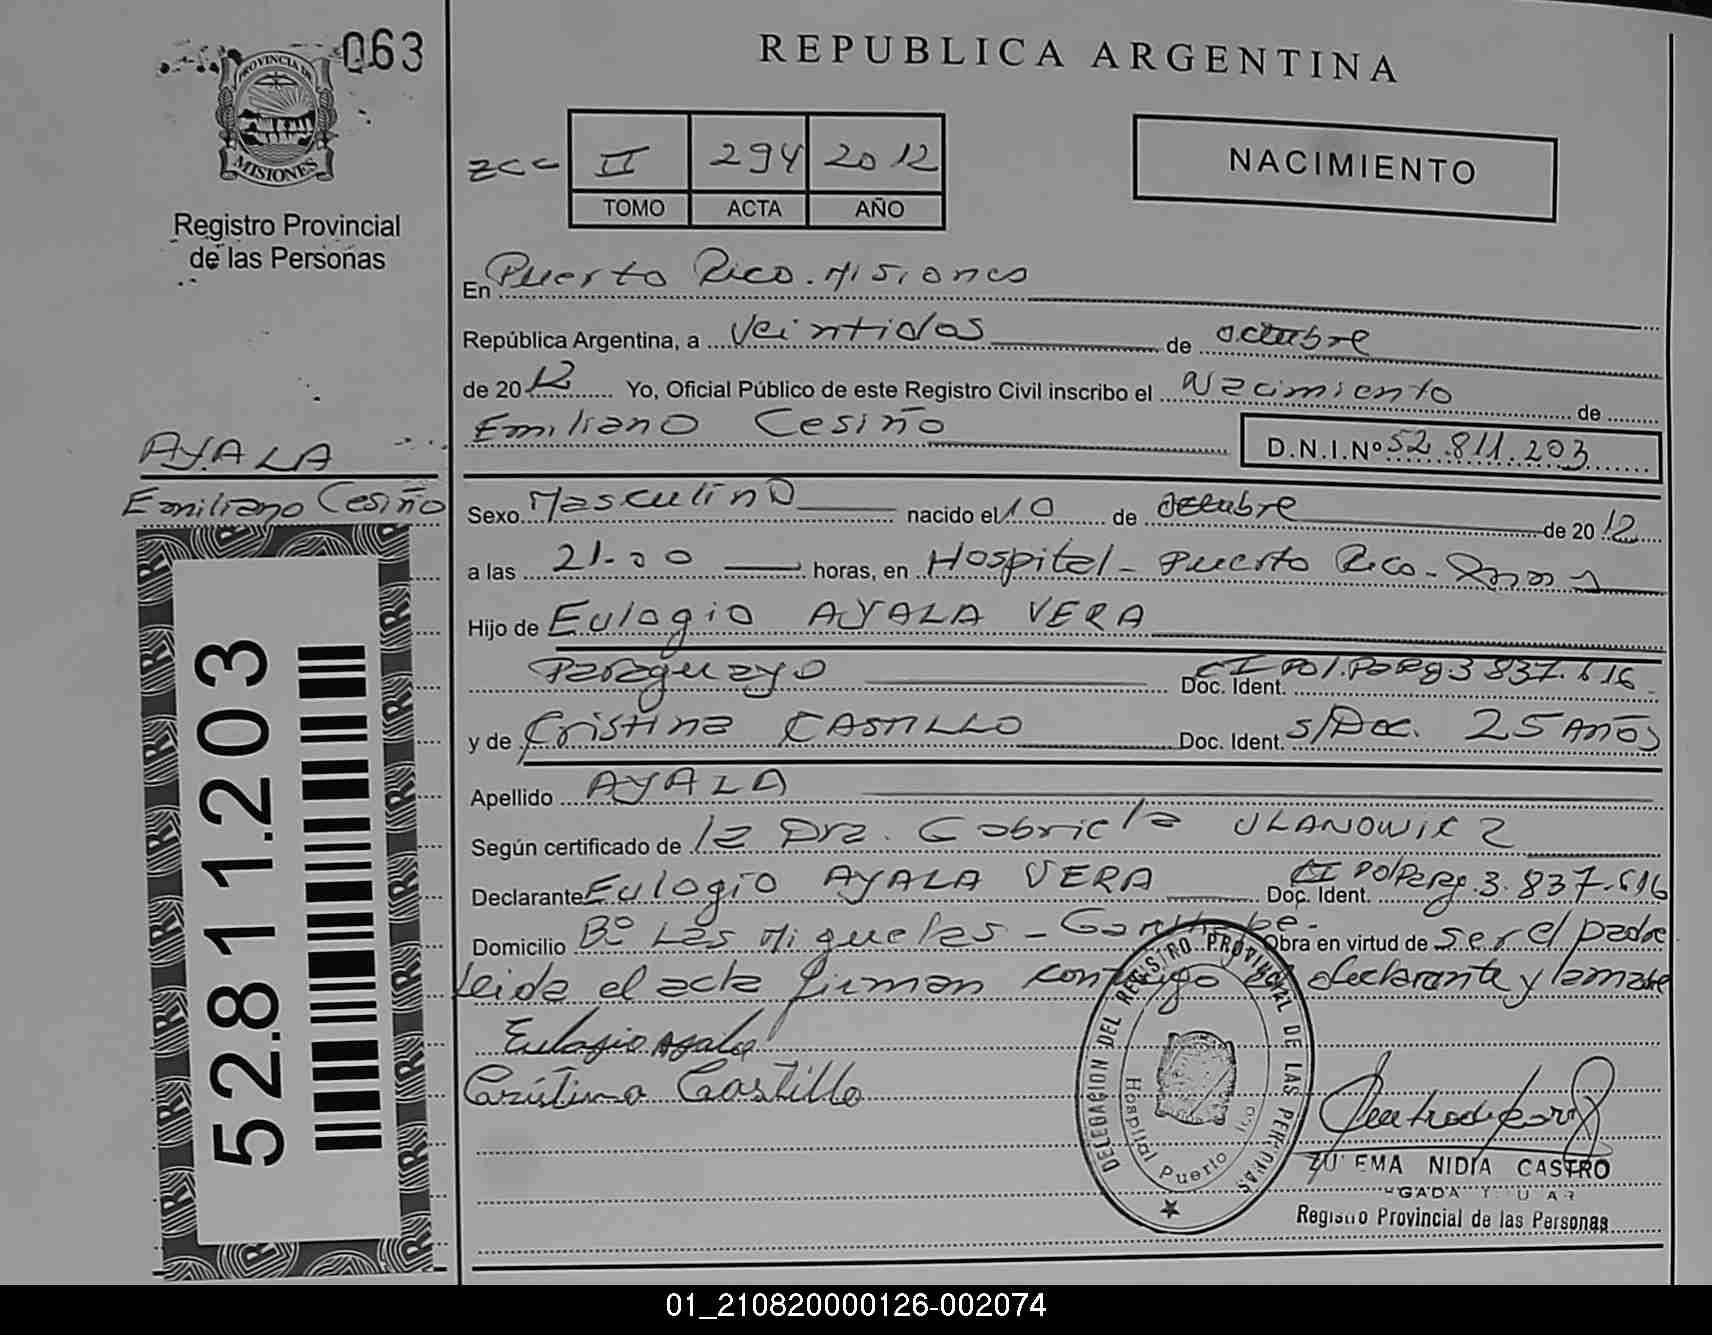 063
PROVINCIA DE
MISIONES
Registro Provincial
de las Personas
AYALA
Emiliano Cesiño
52.811.203
REPUBLICA ARGENTINA
NACIMIENTO
zcc II 294 2012
TOMO ACTA AÑO
En Puerto Rico. Misiones
República Argentina, a Veintidos de octubre
de 2012 Yo, Oficial Público de este Registro Civil inscribo el Nacimiento de
Emiliano Cesiño D.N.I.Nº 52.811.203
Sexo Masculino nacido el 10 de octubre de 2012
a las 21.00 horas, en Hospital - Puerto Rico -
Hijo de Eulogio AYALA VERA
Paraguayo Doc. Ident. CI Pol. Parg 3 837.616
y de Cristina CASTILLO Doc. Ident. s/Doc. 25 Años
Apellido AYALA
Según certificado de la Dra. Gabriela ULANOWICZ
Declarante Eulogio AYALA VERA Doc. Ident. CI Pol Parg. 3.837.616
Domicilio Bº Las Miguelas - Obra en virtud de ser el padre
leida el acta firman conmigo el declarante y la madre
Eulogio Ayala
Cristina Castillo
DELEGACION DEL REGISTRO PROVINCIAL DE LAS PERSONAS
Hospital Puerto
NIDIA CASTRO
Registro Provincial de las Personas
01_210820000126-002074